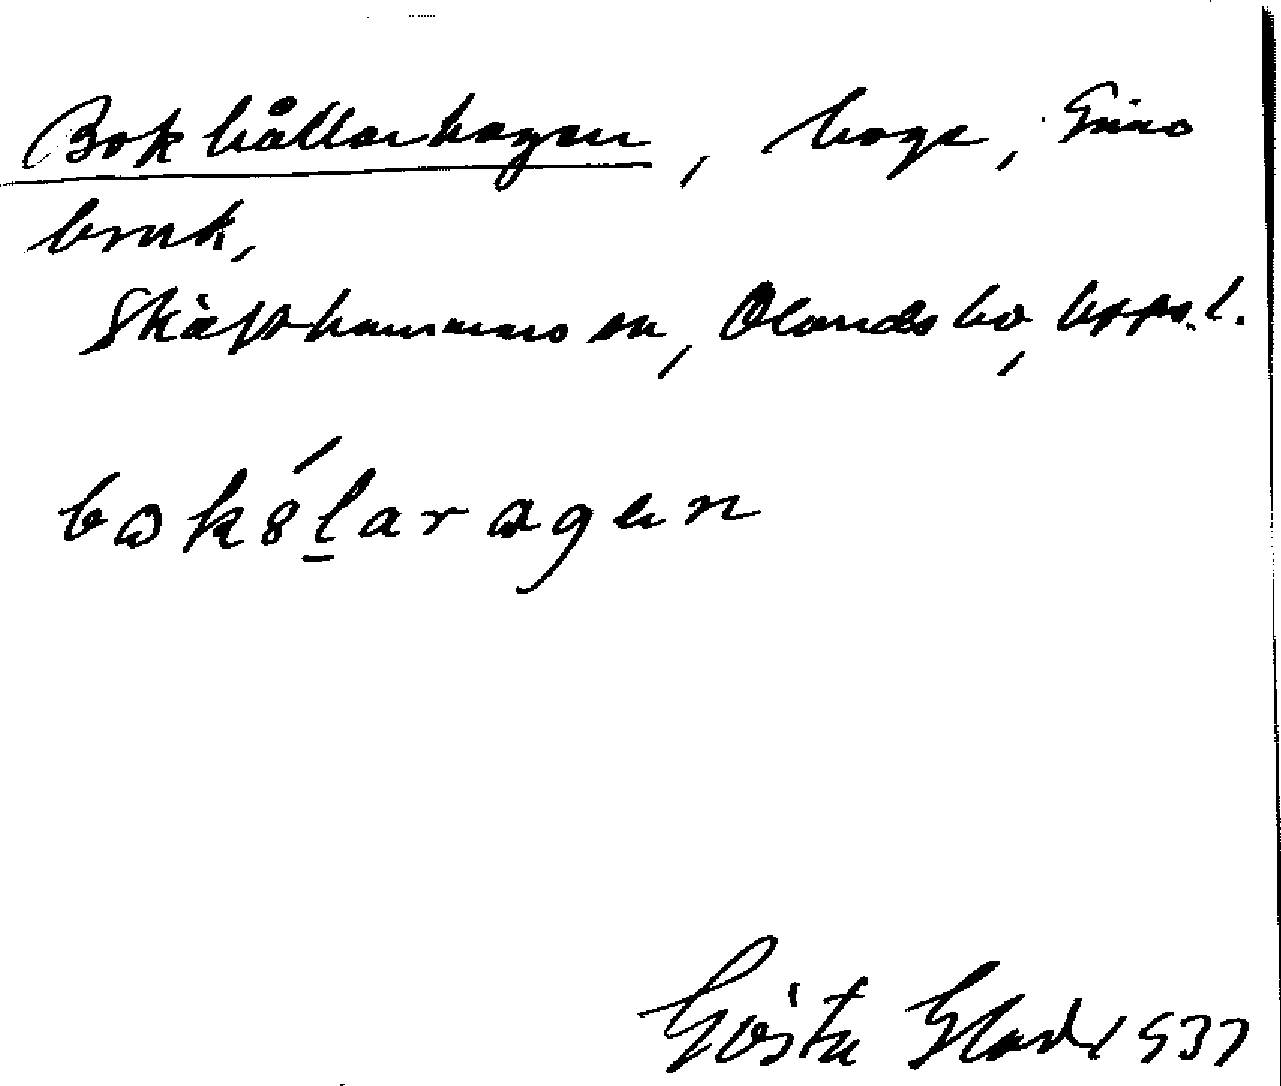 Bokhållarhagen, hage, Gimo
bruk,
Skäfthammars sn, Olands hd, Upps. l.
bok8́laragen
Gösta Glad 1937